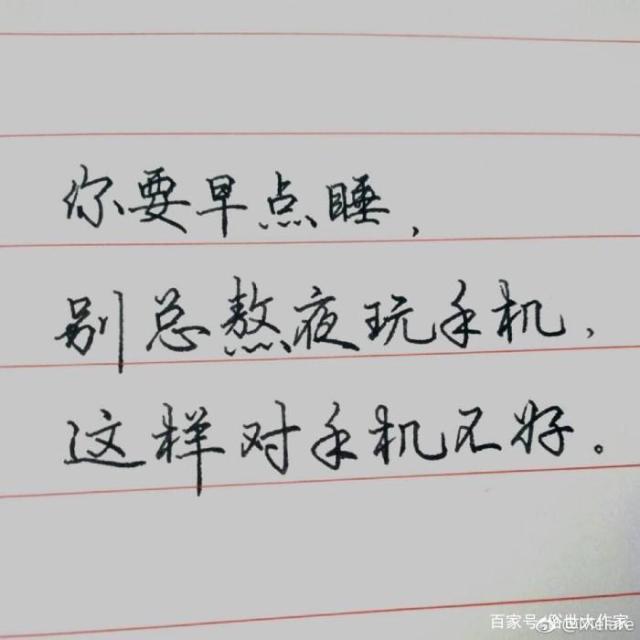 你要早点睡，
别总熬夜玩手机，
这样对手机不好。
百家号/俗世大作家